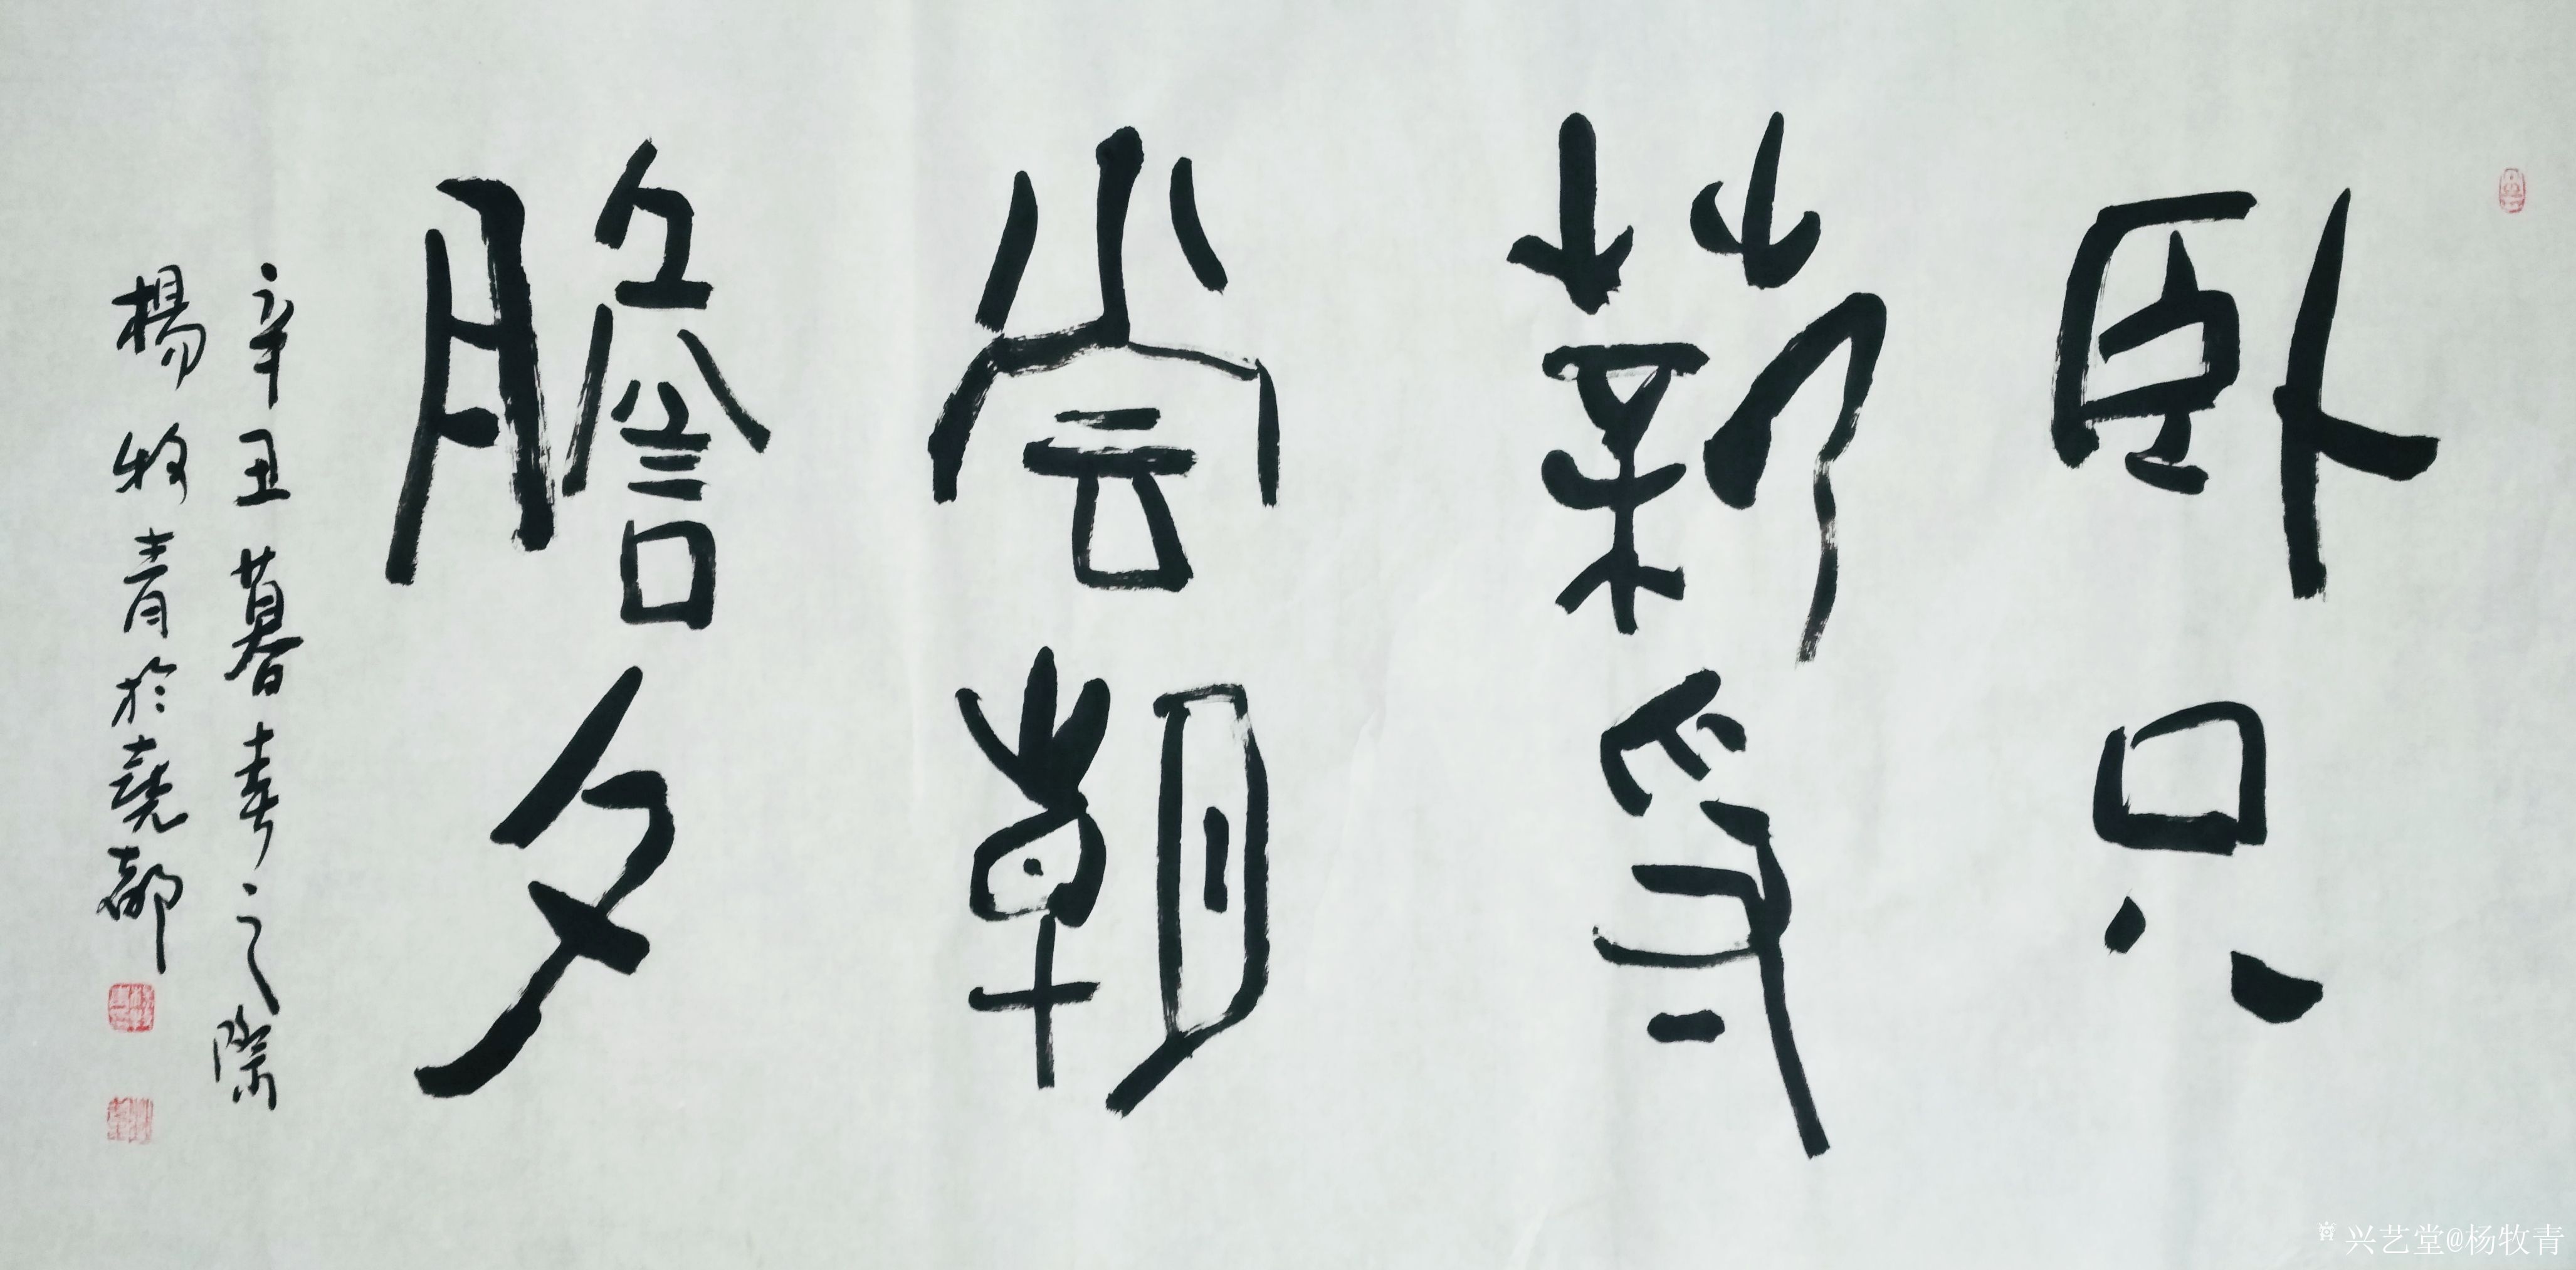 卧只
薪爭
尝朝
膽夕
辛丑暮春之際
楊牧青於堯都
兴艺堂@杨牧青